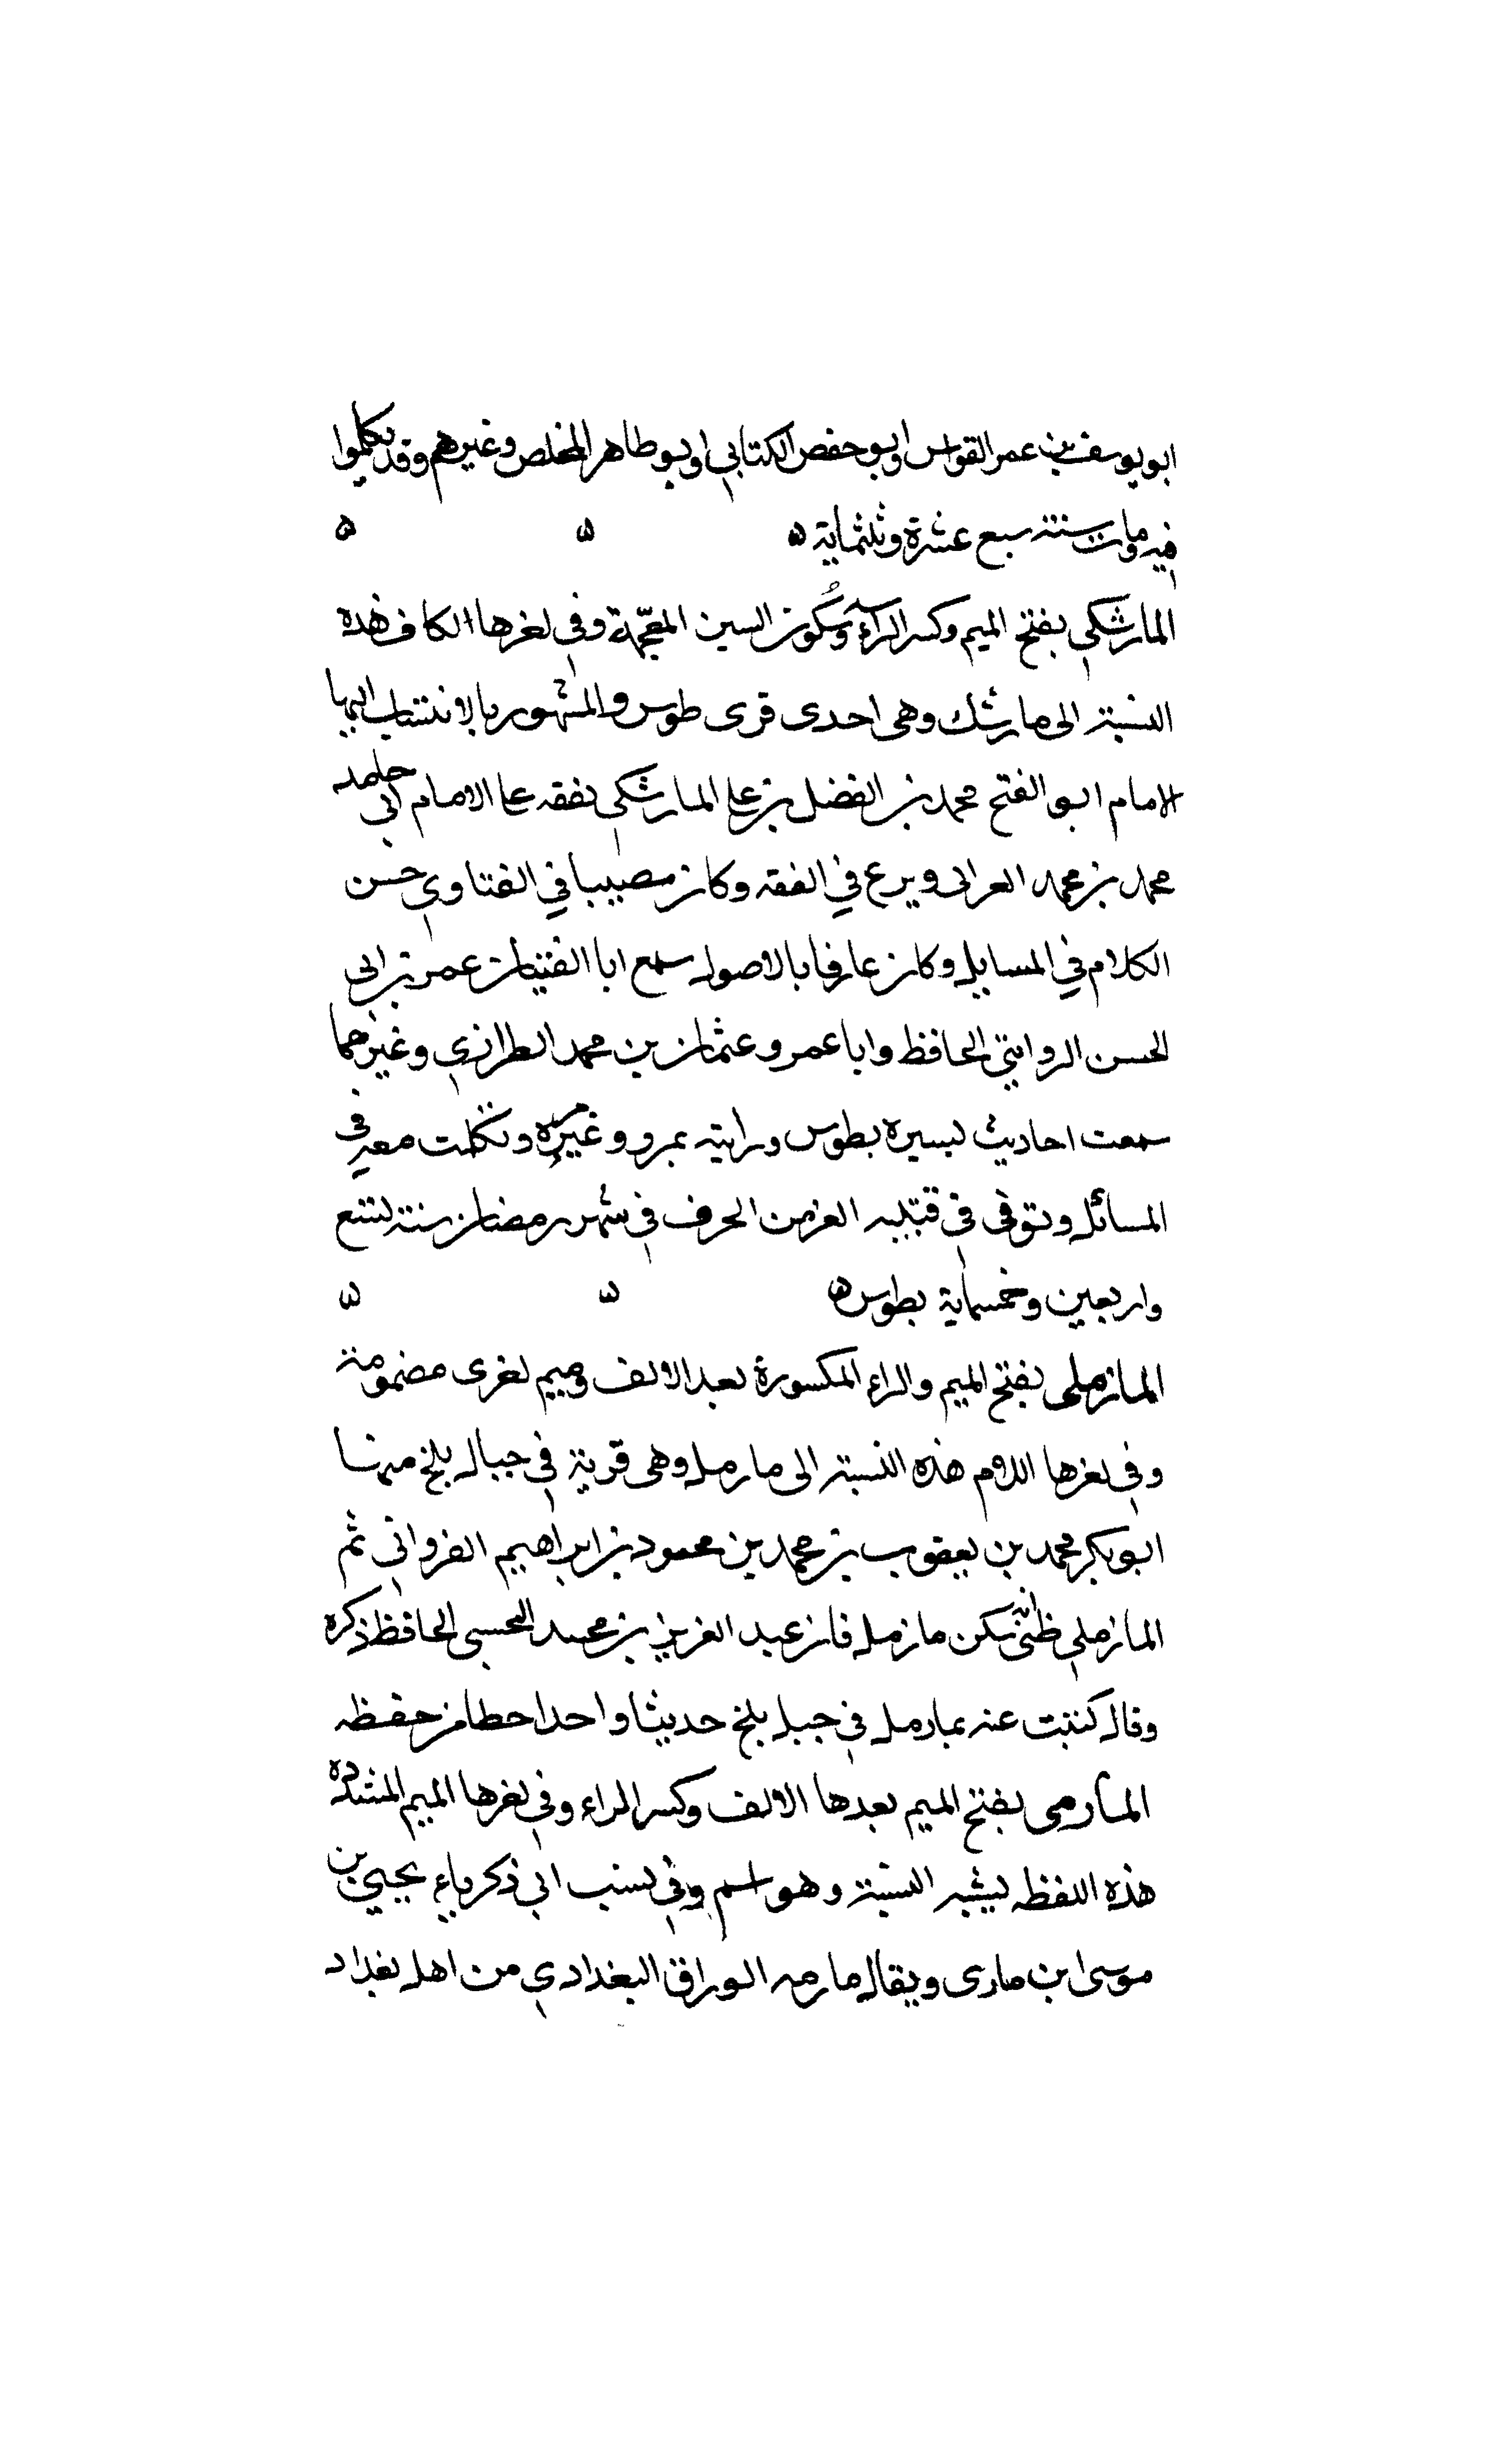 ابو يوسف بن عمر القواس وابو حفص الكتاني وابو طاهر المخلص وغيرهم وقد تكلموا
فيه ومات سنة سبع عشرة وثلثماية ه ه ه
المارشكي بفتح الميم وكسر الراء وسكون الشين المعجمة وفي اخرها الكاف هذه
النسبة الى مارشك وهى احدى قرى طوس والمشهور بالانتساب اليها
الامام ابو الفتح محمد بن الفضل بن علي المارشكي تفقه على الامام ابي حامد
محمد بن محمد الغزالى وبرع في الفقه وكان مصيبا في الفتاوي حسن
الكلام في المسايل وكان عارفا بالاصول سمع ابا الفتيان عمر بن ابي
الحسن الرواسي الحافظ وابا عمرو عثمان بن محمد الطرازي وغيرهما
سمعت احاديث يسيرة بطوس ورايته بمرو وغير مرة وتكلمت معه في
المسائل وتوفى في الغز من الحرف في شهر رمضان سنة تسع
واربعين وخمسماية بطوس ه ه ه
المارملى بفتح الميم والراء المكسورة بعد الالف وميم اخرى مضمومة
وفي اخرها اللام هذه النسبة الى مارمل وهى قرية في جبال بلخ منها
ابو بكر محمد بن يعقوب بن محمد بن محمود بن ابراهيم الغزواني ثم
المارملي ظني انه سكن مارمل فان عبد العزيز بن محمد النخشبى الحافظ ذكره
وقال كتبت عنه بمارمل في جبل بلخ حديثا واحدا خطا من حفظه
المارمى بفتح الميم بعدها الالف وكسر الراء وفي اخرها الميم المشددة
هذه اللفظه يشبه النسبة وهو اسم وفي نسب ابي زكرياء يحيي بن
موسى ابن مارمى ويقال مارمه الوراق البغدادي من اهل بغداد